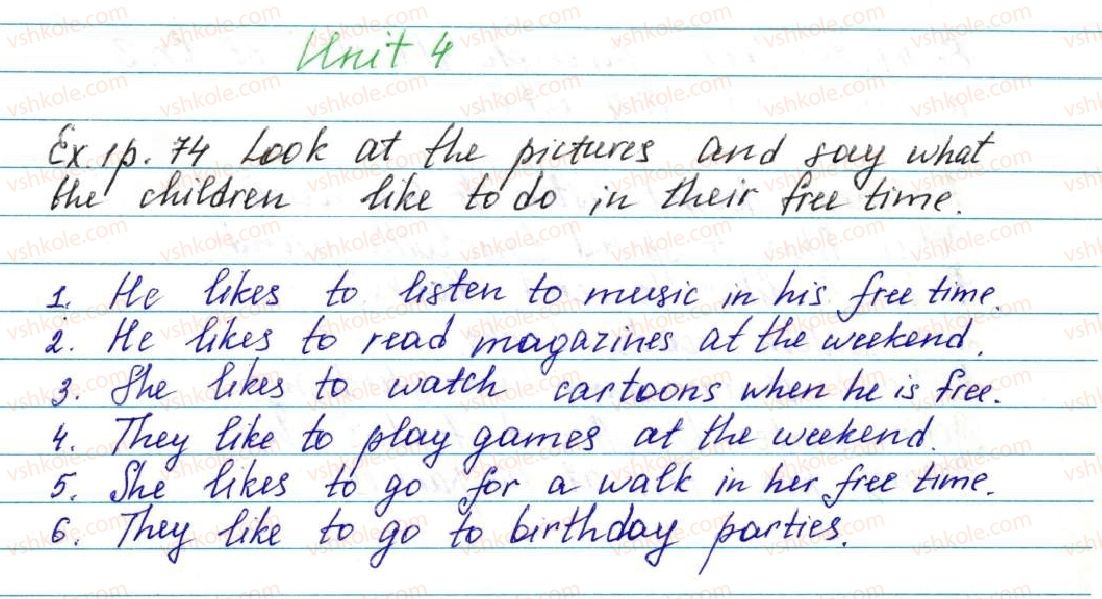 Unit 4
Ex. 1 p. 74 Look at the pictures and say what
the children like to do in their free time.
1. He likes to listen to music in his free time.
2. He likes to read magazines at the weekend.
3. She likes to watch cartoons when he is free.
4. They like to play games at the weekend.
5. She likes to go for a walk in her free time.
6. They like to go to birthday parties.
vshkole.com